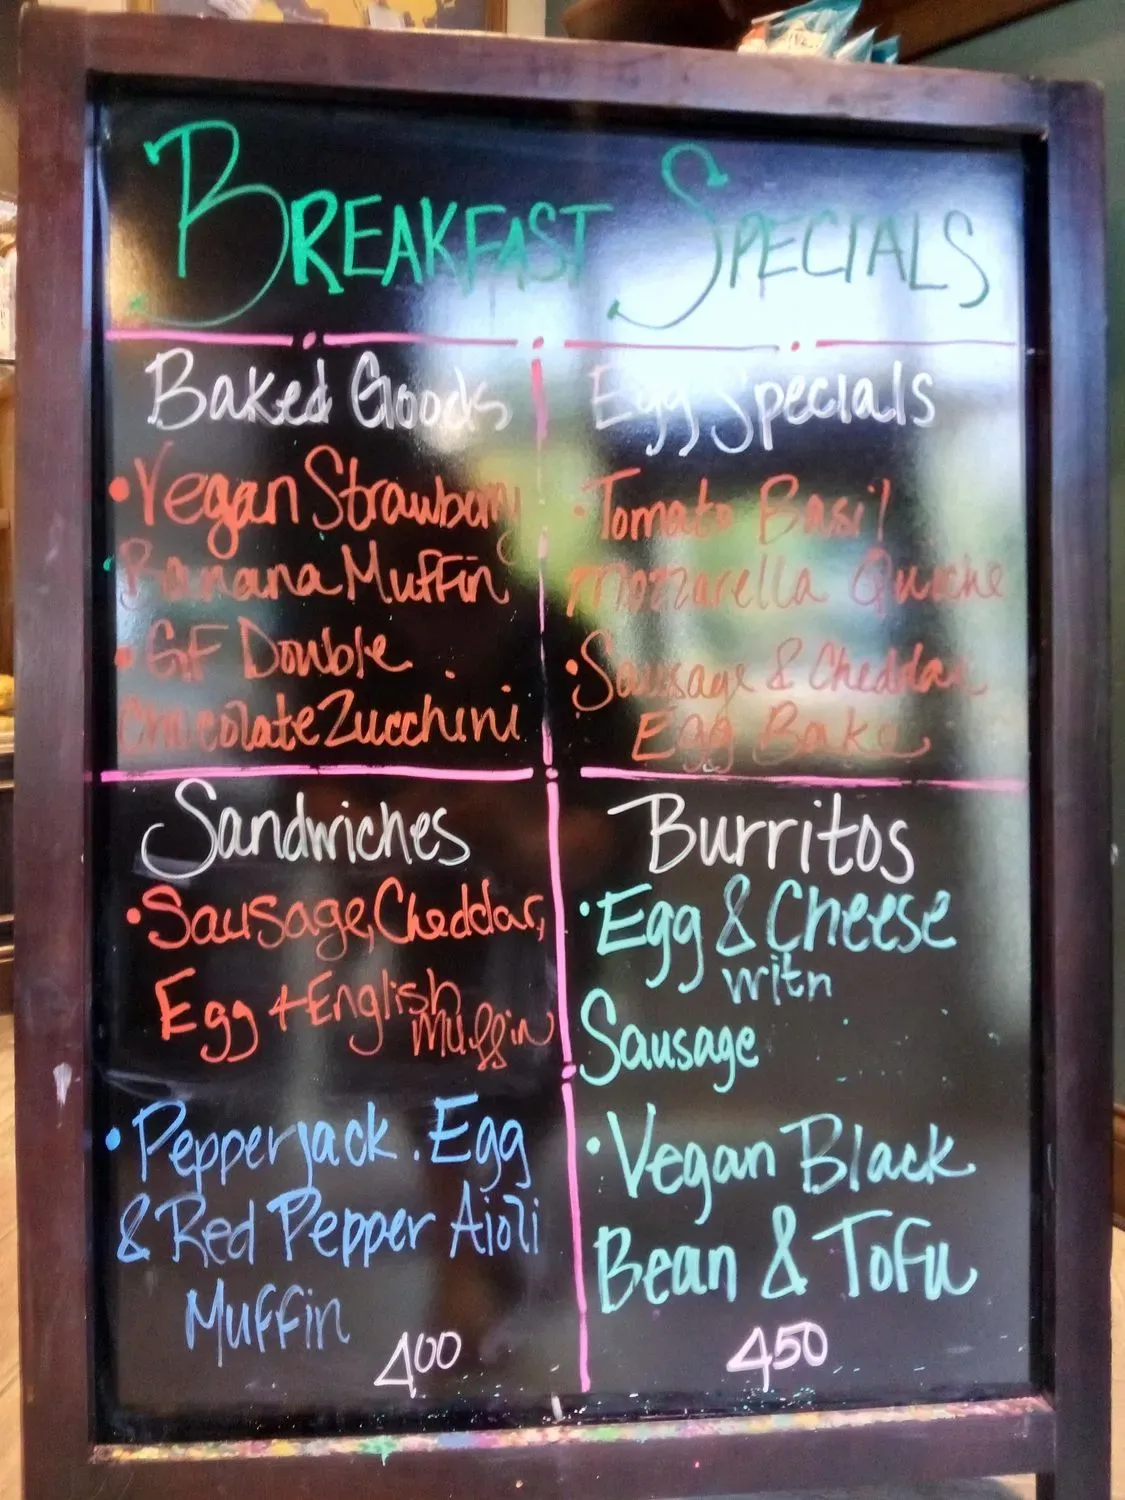 BREAKFAST SPECIALS
Baked Goods
• Vegan Strawberry
Banana Muffin
• GF Double
Chocolate Zucchini
Egg Specials
• Tomato Basil
Mozzarella Quiche
• Sausage & Cheddar
Egg Bake
Sandwiches
• Sausage, Cheddar,
Egg + English
Muffin
• Pepperjack. Egg
& Red Pepper Aioli
Muffin
400
Burritos
• Egg & Cheese
with
Sausage
• Vegan Black
Bean & Tofu
450